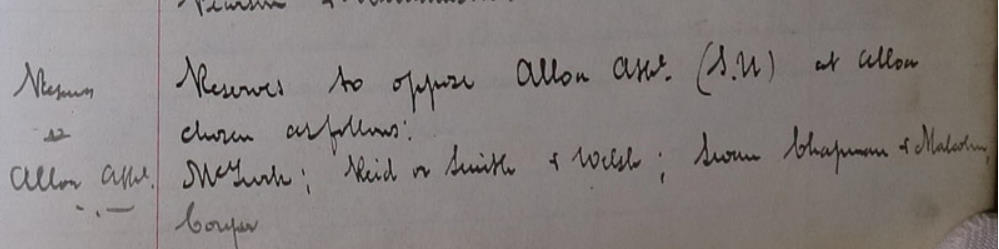 Reserves
Reserves to oppose Alloa Ath. (S.U) at Alloa
chosen as follows:
Alloa Ath.
McGurk; Reid or Smith & Welsh; Swan Chapman & Malcolm,
Couper